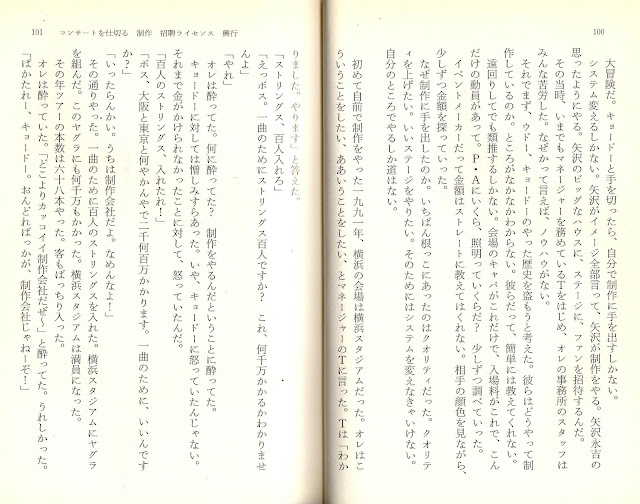 100
大冒険だ。キョードーと手を切ったら、自分で制作に手を出すしかない。
システム変えるしかない。矢沢がイメージ全部言って、矢沢が制作をやる。矢沢永吉の
思ったようにやる。矢沢のビッグなハウスに、ステージに、ファンを招待するんだ。
その当時、いまでもマネージャーを務めているTをはじめ、オレの事務所のスタッフは
みんな苦労した。なぜかって言えば、ノウハウがない。
それでまず、ウドー、キョードーのやった歴史を盗もうと考えた。彼らはどうやって制
作しているのか。ところがなかなかわからない。彼らだって、簡単には教えてくれない。
遠回りしてでも類推するしかない。会場のキャパがこれだけで、入場料がこれで、こん
だけの動員があって。P・Aにいくら、照明っていくらだ? 少しずつ調べていった。
イベントメーカーだって金額はストレートに教えてはくれない。相手の顔色を見ながら、
少しずつ金額を探っていった。
なぜ制作に手を出したのか。いちばん根っこにあったのはクオリティだった。クオリテ
ィを上げたい。いいステージをやりたい。そのためにはシステムを変えなきゃいけない。
自分のところでやるしか道はない。
初めて自前で制作をやった一九九一年、横浜の会場は横浜スタジアムだった。オレはこ
ういうことをしたい、ああいうことをしたい、とマネージャーのTに言った。Tは「わか
101 コンサートを仕切る 制作 招聘ライセンス 興行
りました。やります」と答えた。
「ストリングス、百人入れろ」
「えっボス。一曲のためにストリングス百人ですか? これ、何千万かかるかわかりませ
んよ」
「やれ」
オレは酔ってた。何に酔ってた? 制作をやるんだということに酔ってた。
キョードーに対しては憎しみすらあった。いや、キョードーに怒っていたんじゃない。
それまで金がかけられなかったことに対して、怒っていたんだ。
「百人のストリングス、入れたれ!」
「ボス、大阪と東京と何やかんやで二千何百万かかります。一曲のために、いいんです
か?」
「いったらんかい。うちは制作会社だよ。なめんなよ!」
その通りやった。一曲のために百人のストリングスを入れた。横浜スタジアムにヤグラ
を組んだ。このヤグラにも何千万もかかった。横浜スタジアムは満員になった。
その年ツアーの本数は六十八本やった。客もばっちり入った。
オレは酔っていた。「どこよりカッコイイ制作会社だぜ〜」と酔ってた。うれしかった。
「ばかたれー、キョードー。おんどればっかが、制作会社じゃねーぞ!」